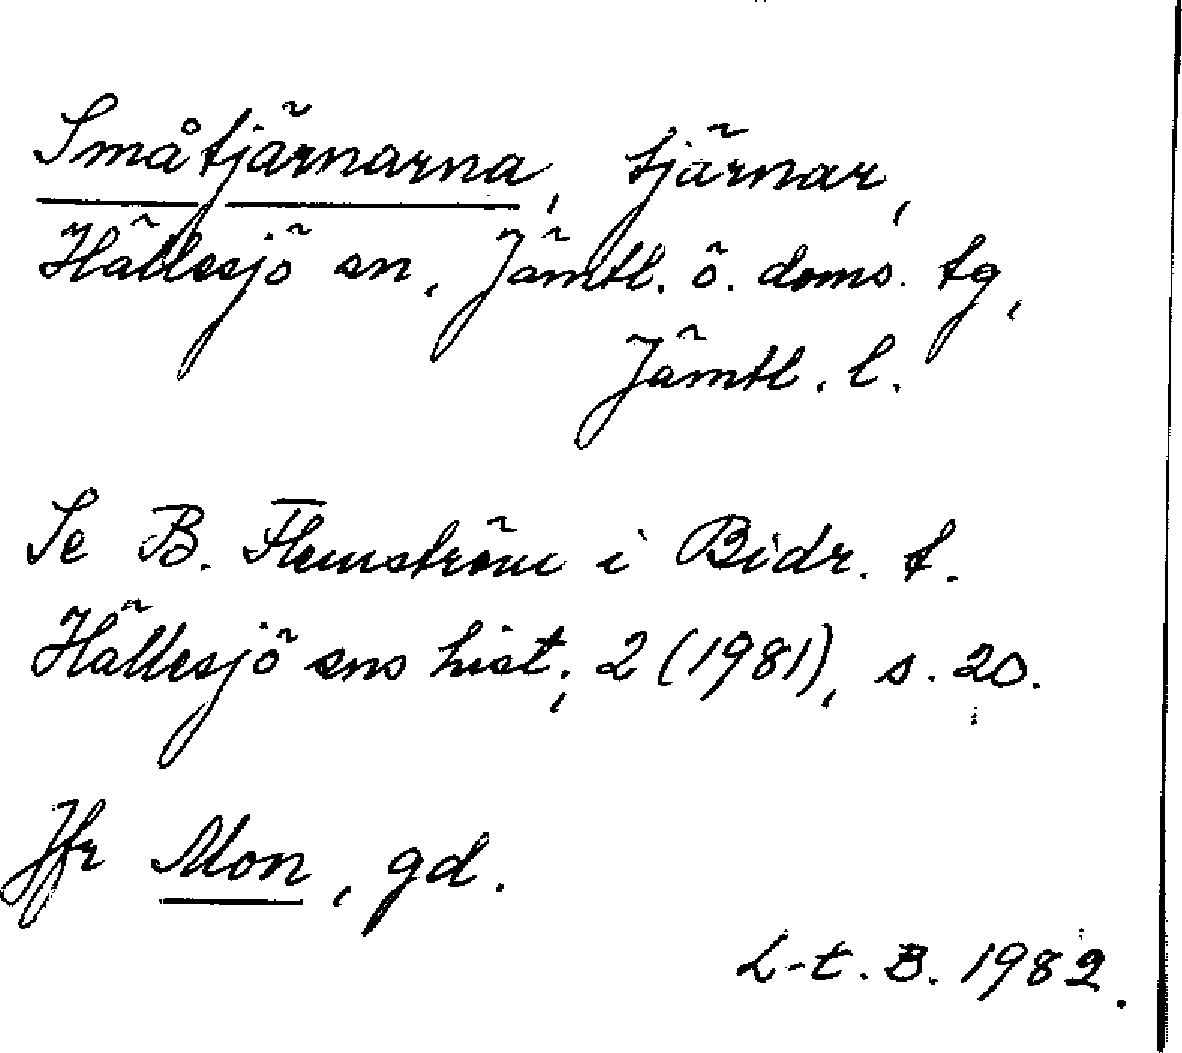 Småtjärnarna, tjärnar,
Hällesjö sn, Jämtl. ö. doms. tg,
Jämtl. l.
Se B. Flemström i Bidr. t.
Hällesjö sns hist., 2 (1981), s. 20.
Jfr Mon, gd.
L-t. B. 1982.